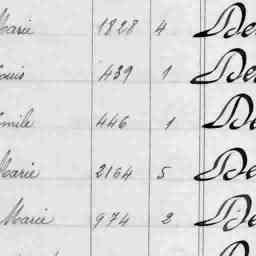 Marie 1828 4 De
Louis 439 1 De
Emile 446 1 De
Marie 2164 5 De
Marie 974 2 De